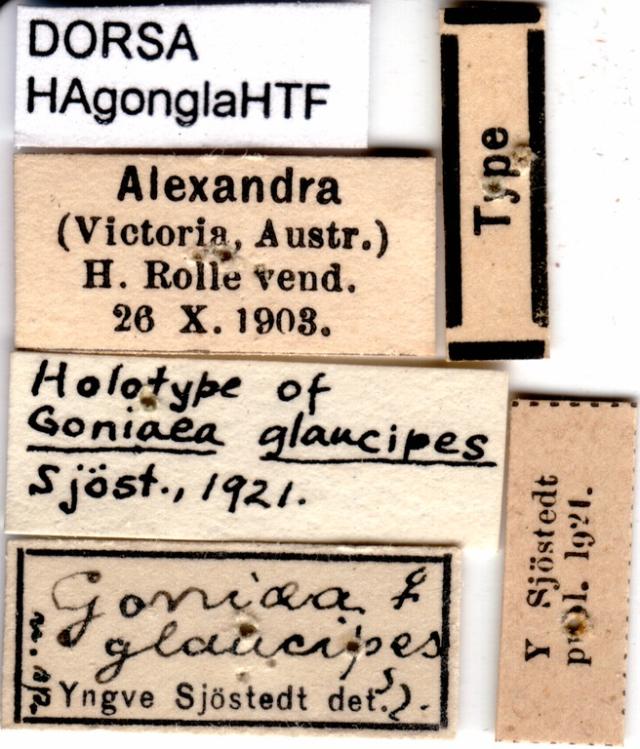 DORSA
HAgonglaHTF
Type
Alexandra
(Victoria, Austr.)
H. Rolle vend.
26 X. 1903.
Holotype of
Goniaea glaucipes
Sjöst., 1921.
Y Sjöstedt
publ. 1921.
Goniaea ♀
glaucipes
Yngve Sjöstedt det.